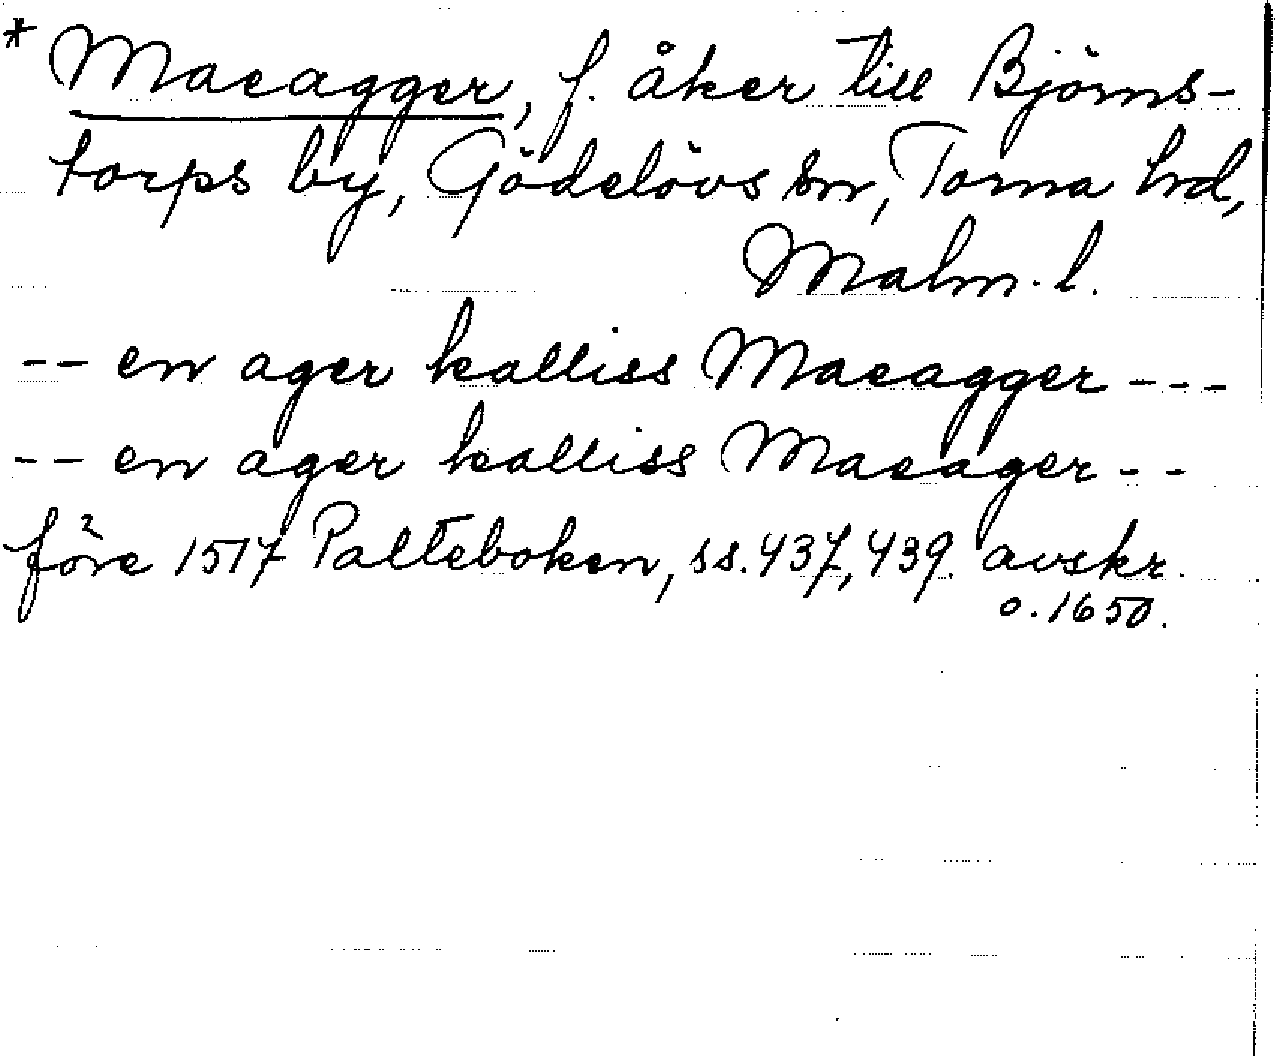 * Macagger, f. åker till Björns-
torps by, Gödelövs sn, Torna hrd,
Malm. l.
-- en ager kalliss Macagger ---
-- en ager kalliss Macager --
före 1517 Palteboken, ss. 437, 439. avskr.
o. 1650.